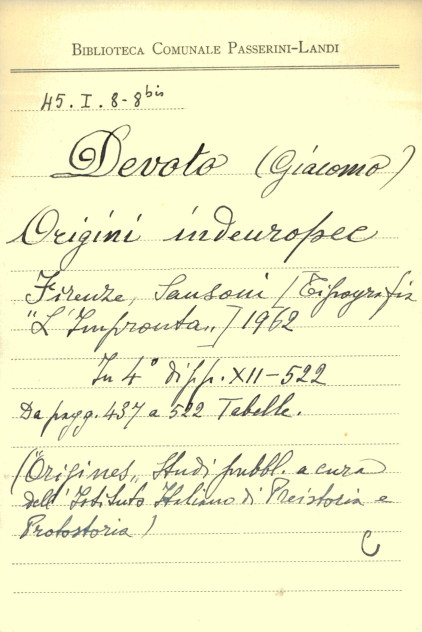 BIBLIOTECA COMUNALE PASSERINI-LANDI
45. I. 8-8bis
Devoto (Giacomo)
Origini indeuropee
Firenze, Sansoni [Tipografia
"L'Impronta"] 1962
In 4° di pp. XII-522
Da pagg. 437 a 522 Tabelle.
("Origines" Studi pubbl. a cura
dell'Istituto Italiano di Preistoria e
Protostoria)
C